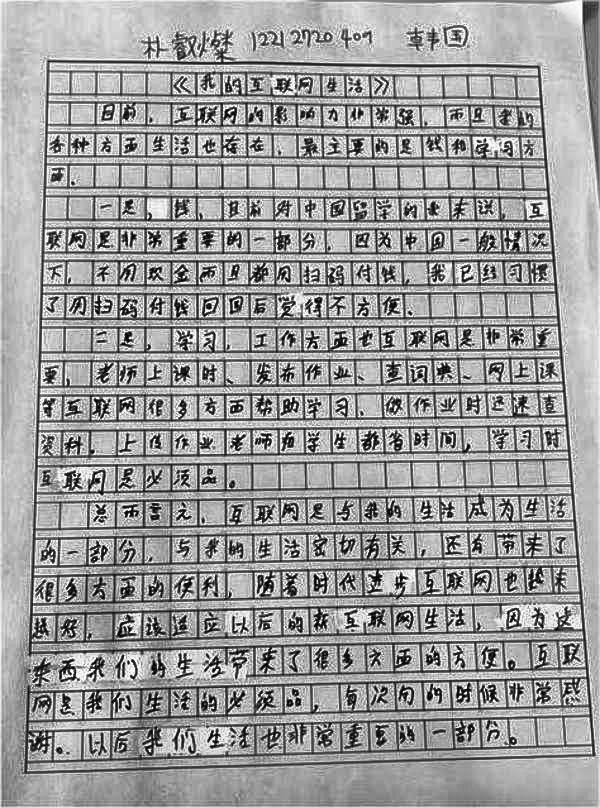 朴叡燦 12212720409 韩国
《我的互联网生活》
目前，互联网的影响力非常强，而且我的
各种方面生活也存在，最主要的是钱和学习方
面.
一是，钱，目前对中国留学的我来说，互
联网是非常重要的一部分，因为中国一般情况
下，不用现金而且都用扫码付钱，我已经习惯
了用扫码付钱回国后觉得不方便.
二是，学习，工作方面也互联网是非常重
要，老师上课时、发布作业、查词典、网上课
等互联网很多方面帮助学习，做作业时迅速查
资料，上传作业老师和学生都省时间，学习时
互联网是必须品。
总而言之，互联网是与我的生活成为生活
的一部分，与我的生活密切有关，还有带来了
很多方面的便利，随着时代进步互联网也越来
越好，应该适应以后的新互联网生活，因为这
东西我们的生活带来了很多方面的方便。互联
网是我们生活的必须品，每次用的时候非常感
谢。以后我们生活也非常重要的一部分。